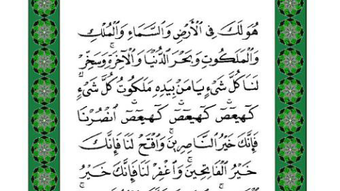 هُوَ لَكَ فِي الْأَرْضِ وَالسَّمَاءِ وَالْمُلْكِ
وَالْمَلَكُوتِ وَبَحْرَ الدُّنْيَا وَالْآخِرَةِ وَسَخِّرْ
لَنَا كُلَّ شَيْءٍ يَا مَنْ بِيَدِهِ مَلَكُوتُ كُلِّ شَيْءٍ
كهيعص كهيعص كهيعص انْصُرْنَا
فَإِنَّكَ خَيْرُ النَّاصِرِينَ وَافْتَحْ لَنَا فَإِنَّكَ
خَيْرُ الْفَاتِحِينَ وَاغْفِرْ لَنَا فَإِنَّكَ خَيْرُ